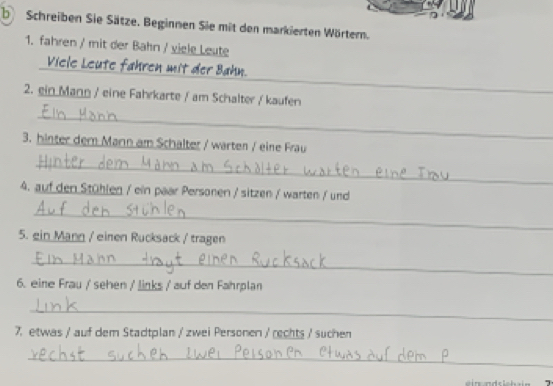 b Schreiben Sie Sätze. Beginnen Sie mit den markierten Wörtern.
1. fahren / mit der Bahn / viele Leute
Viele Leute fahren mit der Bahn.
2. ein Mann / eine Fahrkarte / am Schalter / kaufen
Ein Mann
3. hinter dem Mann am Schalter / warten / eine Frau
Hinter dem Mann am Schalter warten eine Frau
4. auf den Stühlen / ein paar Personen / sitzen / warten / und
Auf den Stühlen
5. ein Mann / einen Rucksack / tragen
Ein Mann trayt einen Rucksack
6. eine Frau / sehen / links / auf den Fahrplan
Link
7. etwas / auf dem Stadtplan / zwei Personen / rechts / suchen
rechst suchen zwei Personen etwas auf dem P